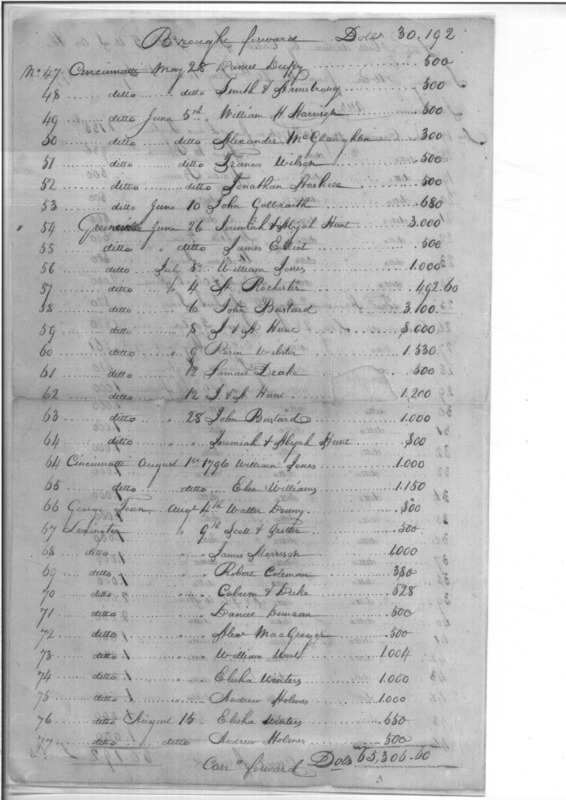 Brough forward Dols 30.192
No 47 Cincinnatti May 28 Daniel 500
48 ditto ditto Smith & Armstrong 500
49 ditto June 5th William H Harrison 500
50 ditto ditto Alexander McClaughlan 300
51 ditto ditto Francis Wilson 500
52 ditto ditto Jonathan 500
53 ditto June 10 John Galbraith 680
54 Greenville June 26 Jeremiah & Abijah Hunt 3.000
55 ditto " ditto James Elliot 600
56 ditto July 3d William Jones 1.000
57 ditto " 4 Rochester 492.60
58 ditto " 6 John Bustard 3.100
59 ditto " 8 J & A Hunt
60 ditto " 9 Webster 1.530
61 ditto " 12 Samuel Drake 600
62 ditto " 12 J & A Hunt 1,200
63 ditto " 28 John Bustard 1.000
64 ditto " " Jeremiah & Abijah Hunt
64 Cincinnatti August 1st 1796 William Jones 1.000
65 ditto ditto Williams 1.150
66 George Town Augt 4th Walter
67 Lexington " 9th Scott & Trotter 500
68 ditto " " James Morrison 1000
69 ditto " " Robert Coleman 380
70 ditto " " Coburn & 528
71 ditto " " Daniel Duncan 500
72 ditto " " Alexr MacGregor 500
73 ditto " " William West 1.004
74 ditto " " Elisha Winters 1.000
75 ditto " " Andrew Holmes 1.000
76 ditto August 15 Elisha Winters 650
77 ditto ditto Andrew Holmes 500
Carrd forward Dols 65,306.60